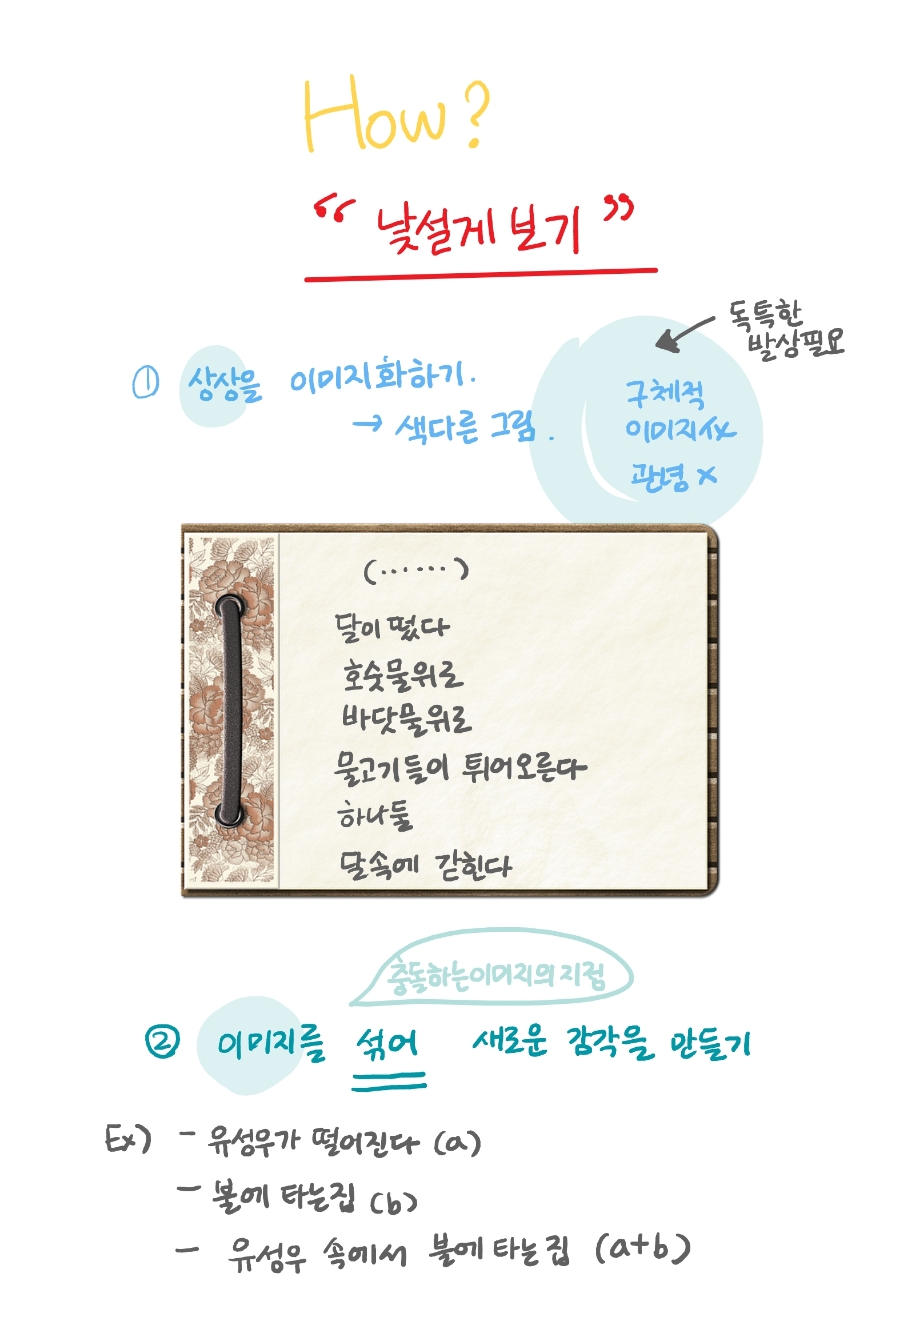 How?
“ 낯설게 보기 ”
독특한
발상필요
① 상상을 이미지화하기.
→ 색다른 그림.
구체적
이미지化
관념 x
(⋯⋯)
달이 떴다
호숫물위로
바닷물위로
물고기들이 튀어오른다
하나둘
달속에 갇힌다
충돌하는이미지의지점
② 이미지를 섞어 새로운 감각을 만들기
Ex) - 유성우가 떨어진다 (a)
- 불에 타는집 (b)
- 유성우 속에서 불에타는집 (a+b)